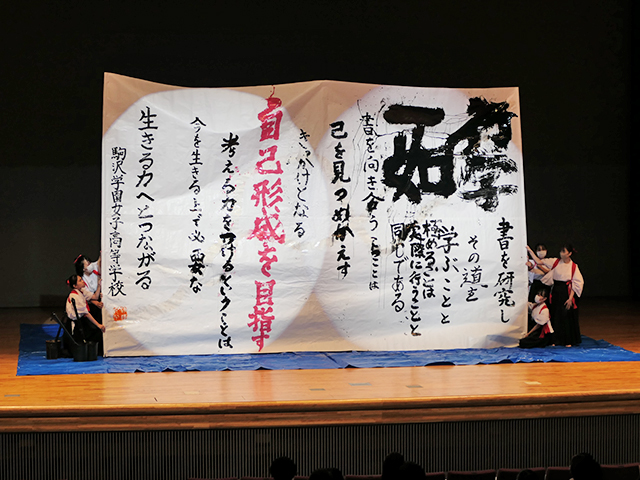 行学
一如
書を研究し
その道を
学ぶことと
極めることは
実際に行うことと
同じである
書を向き合うことは
己を見つめかえす
きっかけとなる
自己形成を目指す
考える力をつけるということは
今を生きる上で必要な
生きる力へとつながる
駒沢学園女子高等学校